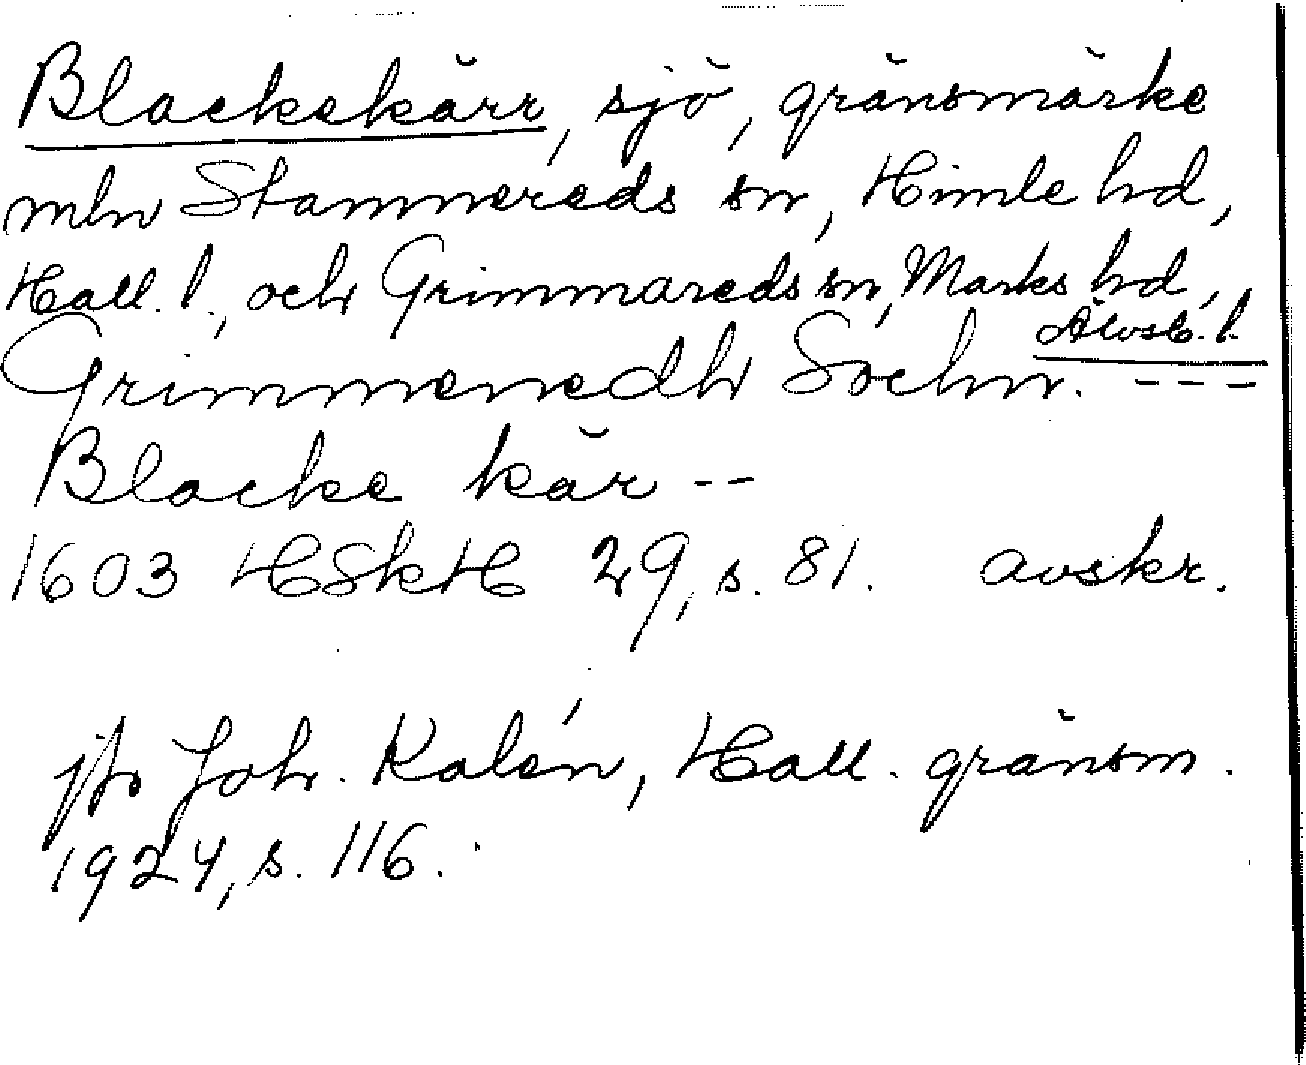 Blackekärr, sjö, gränsmärke
mln Stamnereds sn, Himle hd,
Hall. l., och Grimmareds sn, Marks hd,
Älvsb. l.
Grimmenedh Sochn. - - -
Blacke kär - -
1603 HSkH 29, s. 81. avskr.
jfr Joh. Kalén, Hall. gränsm.
1924, s. 116.